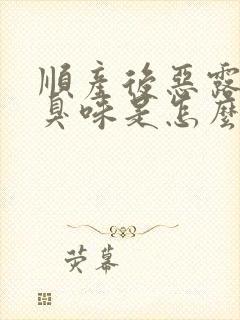 順產後惡露
臭味是怎麼
荧幕